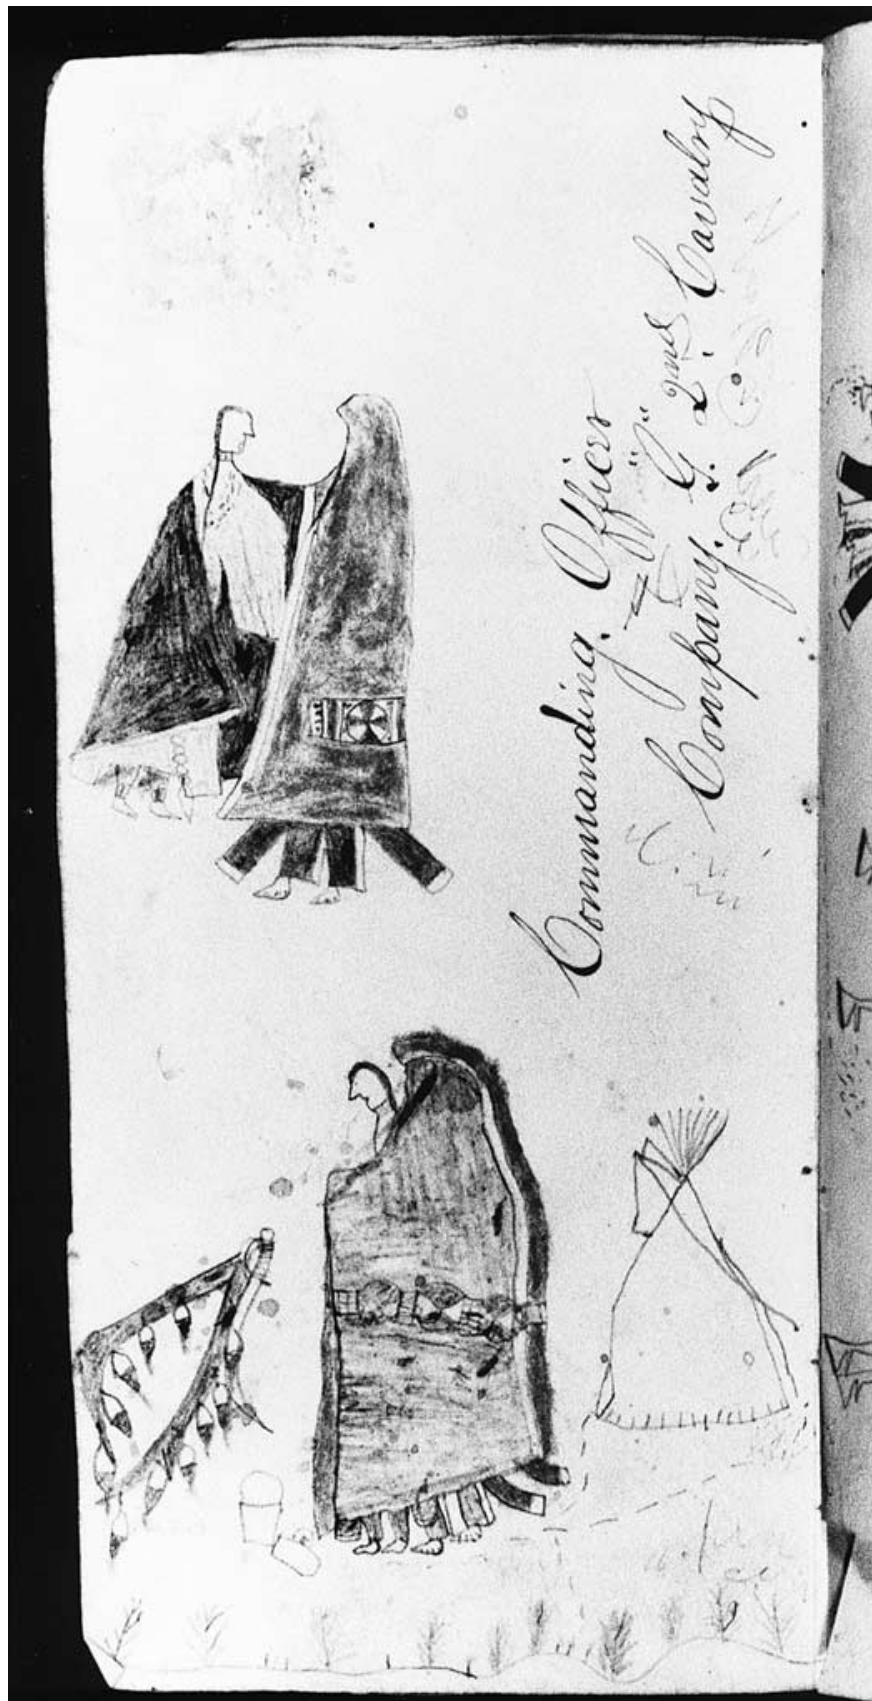 Commanding. Officer
"G"
Company. G. 2nd Cavalry